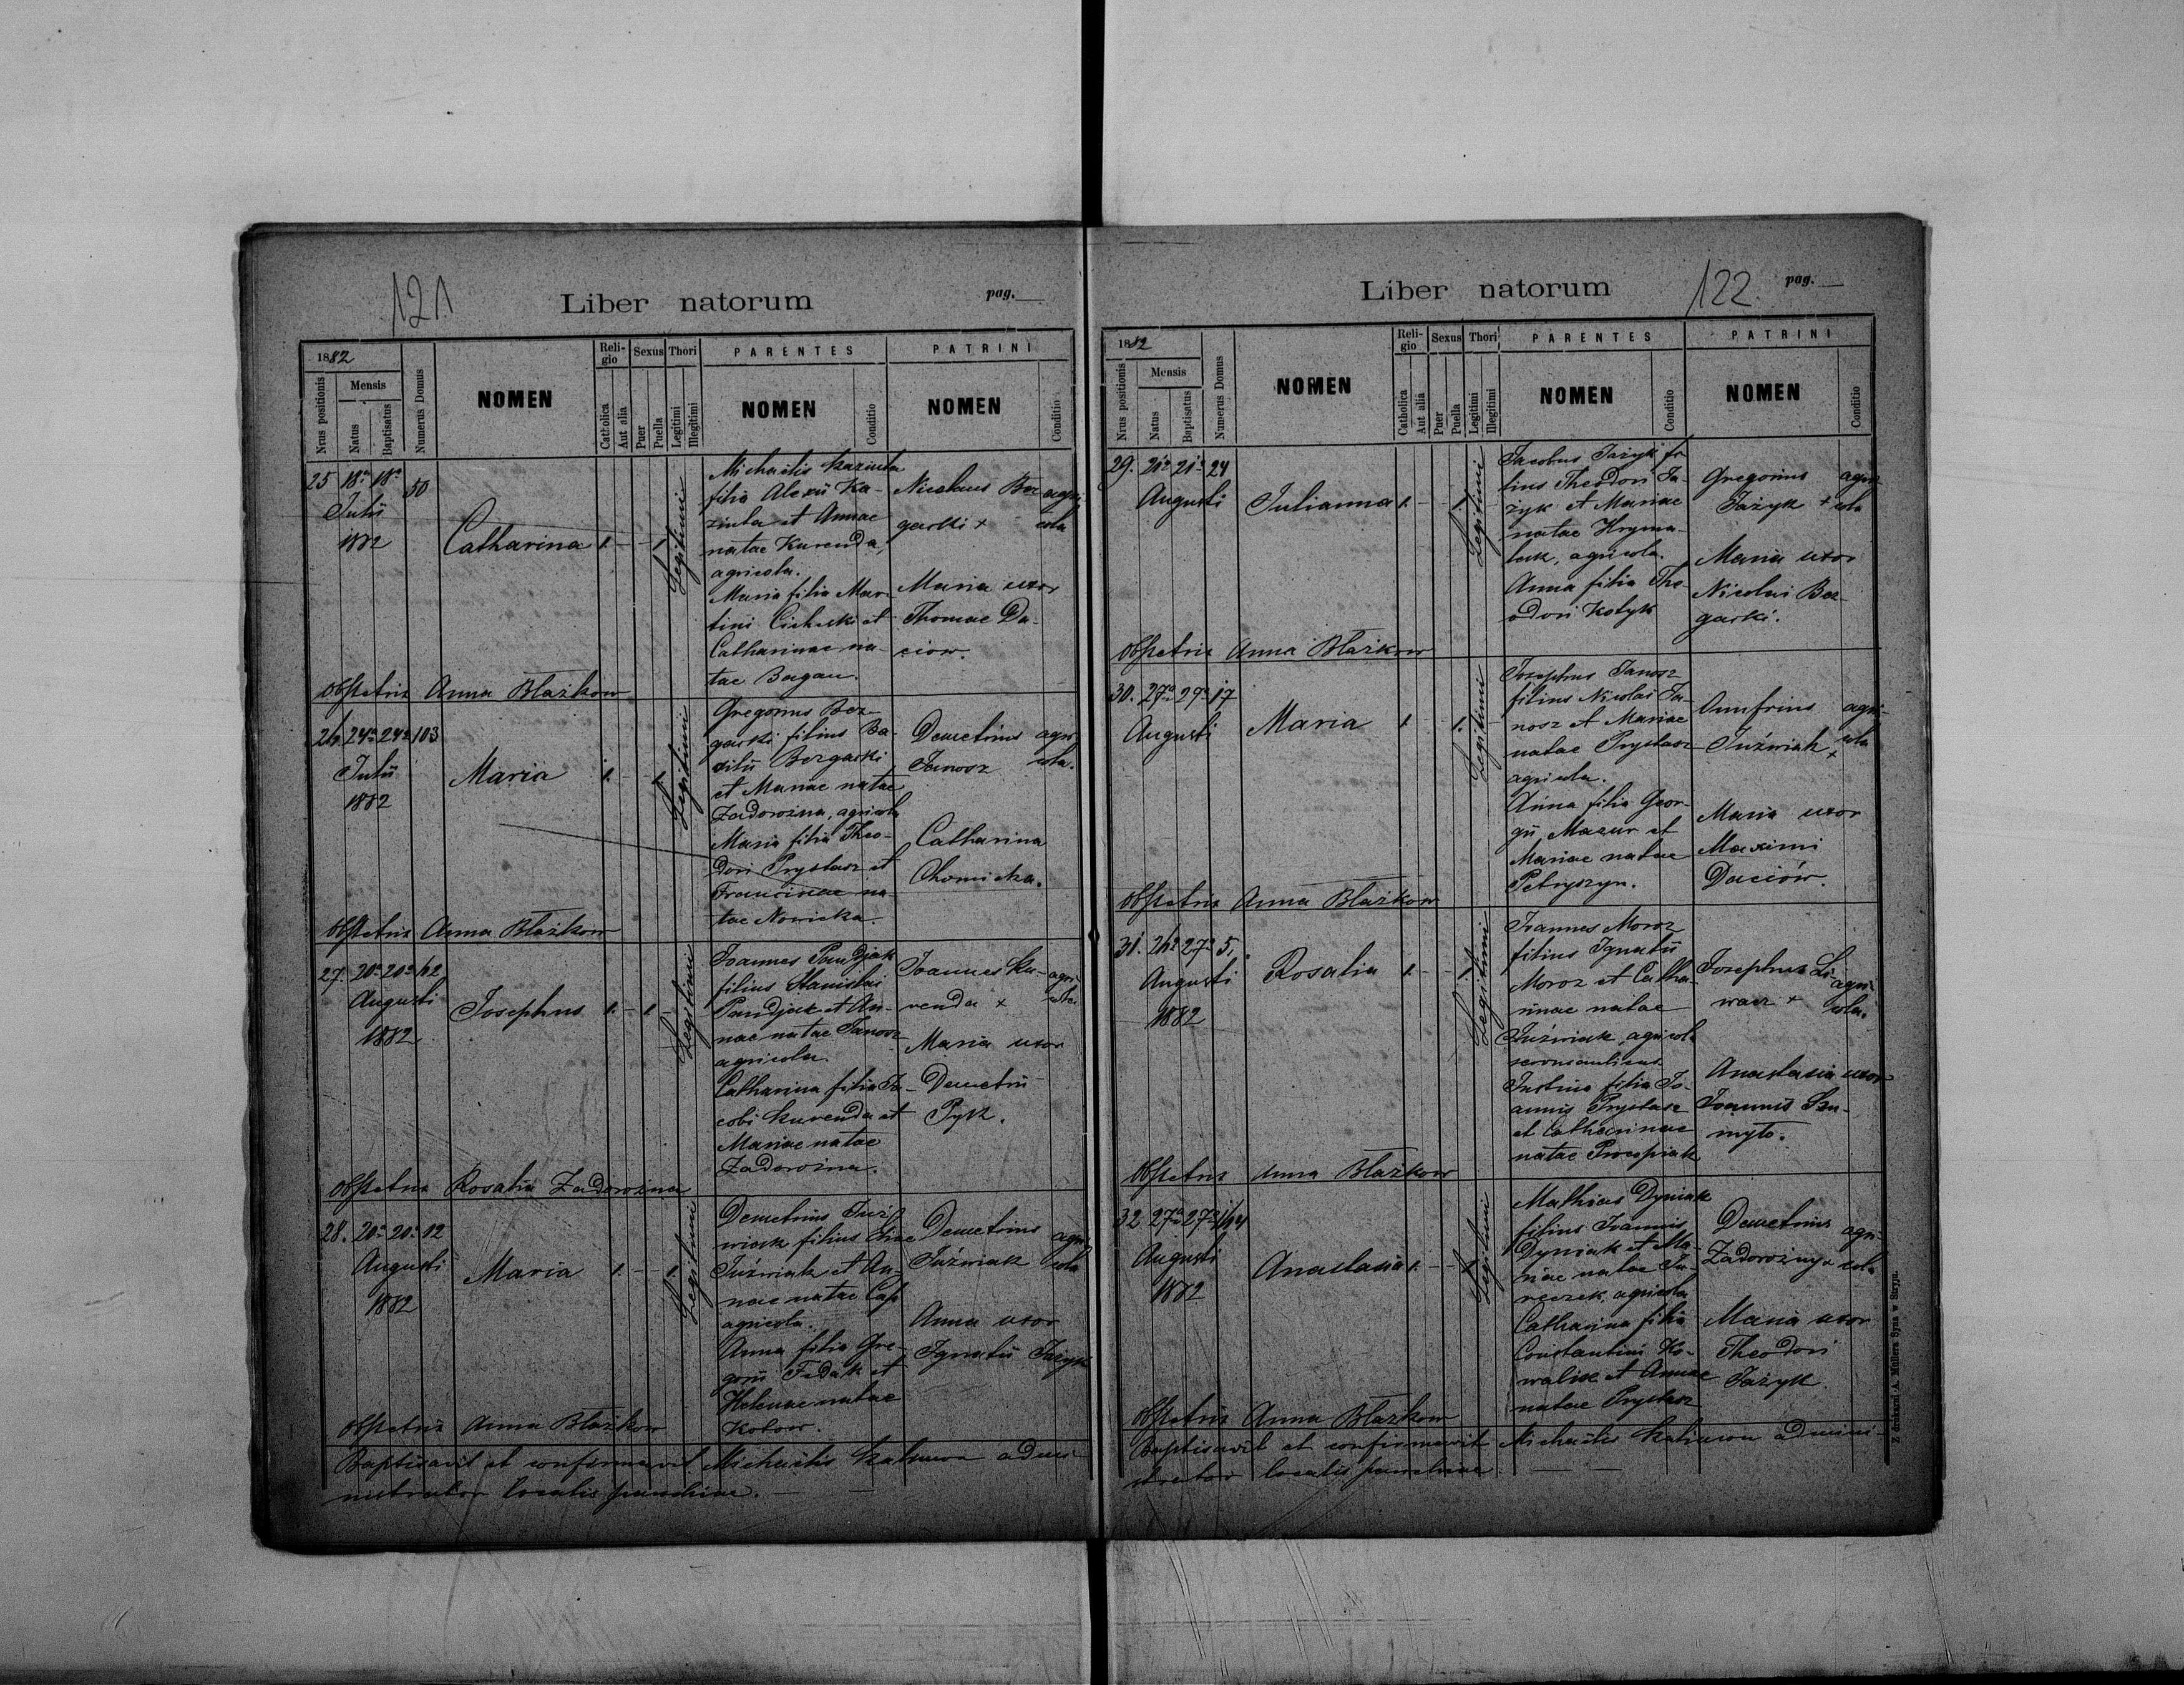 121
Liber natorum
pag.
1882
Nrus positionis
Mensis
Natus
Baptisatus
Numerus Domus
NOMEN
Religio
Catholica
Aut alia
Sexus
Puer
Puella
Thori
Legitimi
Illegitimi
PARENTES
NOMEN
Conditio
PATRINI
NOMEN
Conditio
25 18a 18a 50
Julii
1882
Catharina
1. - - 1.
Legitimi
Michaëlis Kaziuta
filio Alexii Ka-
ziuta et Annae
natae Kurenda,
agricola.
Maria filia Mar-
tini Cichocki et
Catharinae na-
tae Bagan.
Nicolaus Bez
garski +
agri-
cola
Maria uxor
Thomae Da-
ciow.
Obstetrix Anna Błażkow
26. 24a 24a 103
Julii
1882
Maria
1. - - 1.
Legitimi
Gregorius Bez-
garski filius Ba-
silii Bezgarski
et Mariae natae
Zadorozna, agricola
Maria filia Theo-
dori Prystasz et
Francincae na-
tae Nowicka.
Demetrius
Janosz
agri-
cola.
Catharina
Chomicka.
Obstetrix Anna Błażkow
27. 20a 20a 42
Augusti
1882
Josephus
1. - 1. -
Legitimi
Joannes Pandjak
filius Stanislai
Pandjak et An-
nae natae Janosz
agricola.
Catharina filia Ja-
cobi Kurenda et
Mariae natae
Zadorozna.
Joannes Ku-
renda +
agri-
cola
Maria uxor
Demetrii
Pyk.
Obstetrix Rosalia Zadorozna
28. 20a 20a 12
Augusti
1882
Maria
1. - - 1.
Legitimi
Demetrius Juź-
wiak filius
Juźwiak et An-
nae natae Cap
agricola.
Anna filia Gre-
gorii Fedak et
Helenae natae
Kotow.
Demetrius
Juźwiak
agri-
cola
Anna uxor
Ignatii Jażyk
Obstetrix Anna Błażkow
Baptisavit et confirmavit Michaëlis admi-
nistrator localis parochiae.
Liber natorum
122
pag.
1882
Nrus positionis
Mensis
Natus
Baptisatus
Numerus Domus
NOMEN
Religio
Catholica
Aut alia
Sexus
Puer
Puella
Thori
Legitimi
Illegitimi
PARENTES
NOMEN
Conditio
PATRINI
NOMEN
Conditio
29. 21a 21a 24
Augusti
Julianna
1. - - 1.
Legitimi
Jacobus Jażyk fi-
lius Theodori Ja-
żyk et Mariae
natae Hryma-
lak, agricola.
Anna filia The-
odori Kotyk
Gregorius
Jażyk +
agri-
cola
Maria uxor
Nicolai Bez-
garski.
Obstetrix Anna Błażkow
30. 27a 29a 17
Augusti
Maria
1. - - 1.
Legitimi
Josephus Janosz
filius Nicolai Ja-
nosz et Mariae
natae Prystasz
agricola.
Anna filia Geor-
gii Mazur et
Mariae natae
Petryszyn.
Onufrius
Juźwiak +
agri-
cola
Maria uxor
Maximi
Daciów.
Obstetrix Anna Błażkow
31. 26a 27a 5.
Augusti
1882
Rosalia
1. - - 1.
Legitimi
Joannes Moroz
filius Ignatii
Moroz et Catha-
rinae natae
Juźwiak, agricola
Justina filia Jo-
annis Prystasz
et Catharinae
natae Procopiak
Josephus Li-
wacz +
agri-
cola.
Anastasia uxor
Joannis Sza-
myto.
Obstetrix Anna Błażkow
32 27a 27a
Augusti
1882
Anastasia
1. - - 1.
Legitimi
Mathias Dyniak
filius Joannis
Dyniak et Ma-
riae natae Ja-
reczek, agricola
Catharina filia
Constantini Ko-
walisz et Annae
natae Prystasz
Demetrius
Zadorozny +
agri-
cola
Maria uxor
Theodori
Jażyk.
Obstetrix Anna Błażkow
Baptisavit et confirmavit Michaëlis admini-
strator localis parochiae.
Z drukarni A. Müllera Syna w Stryju.